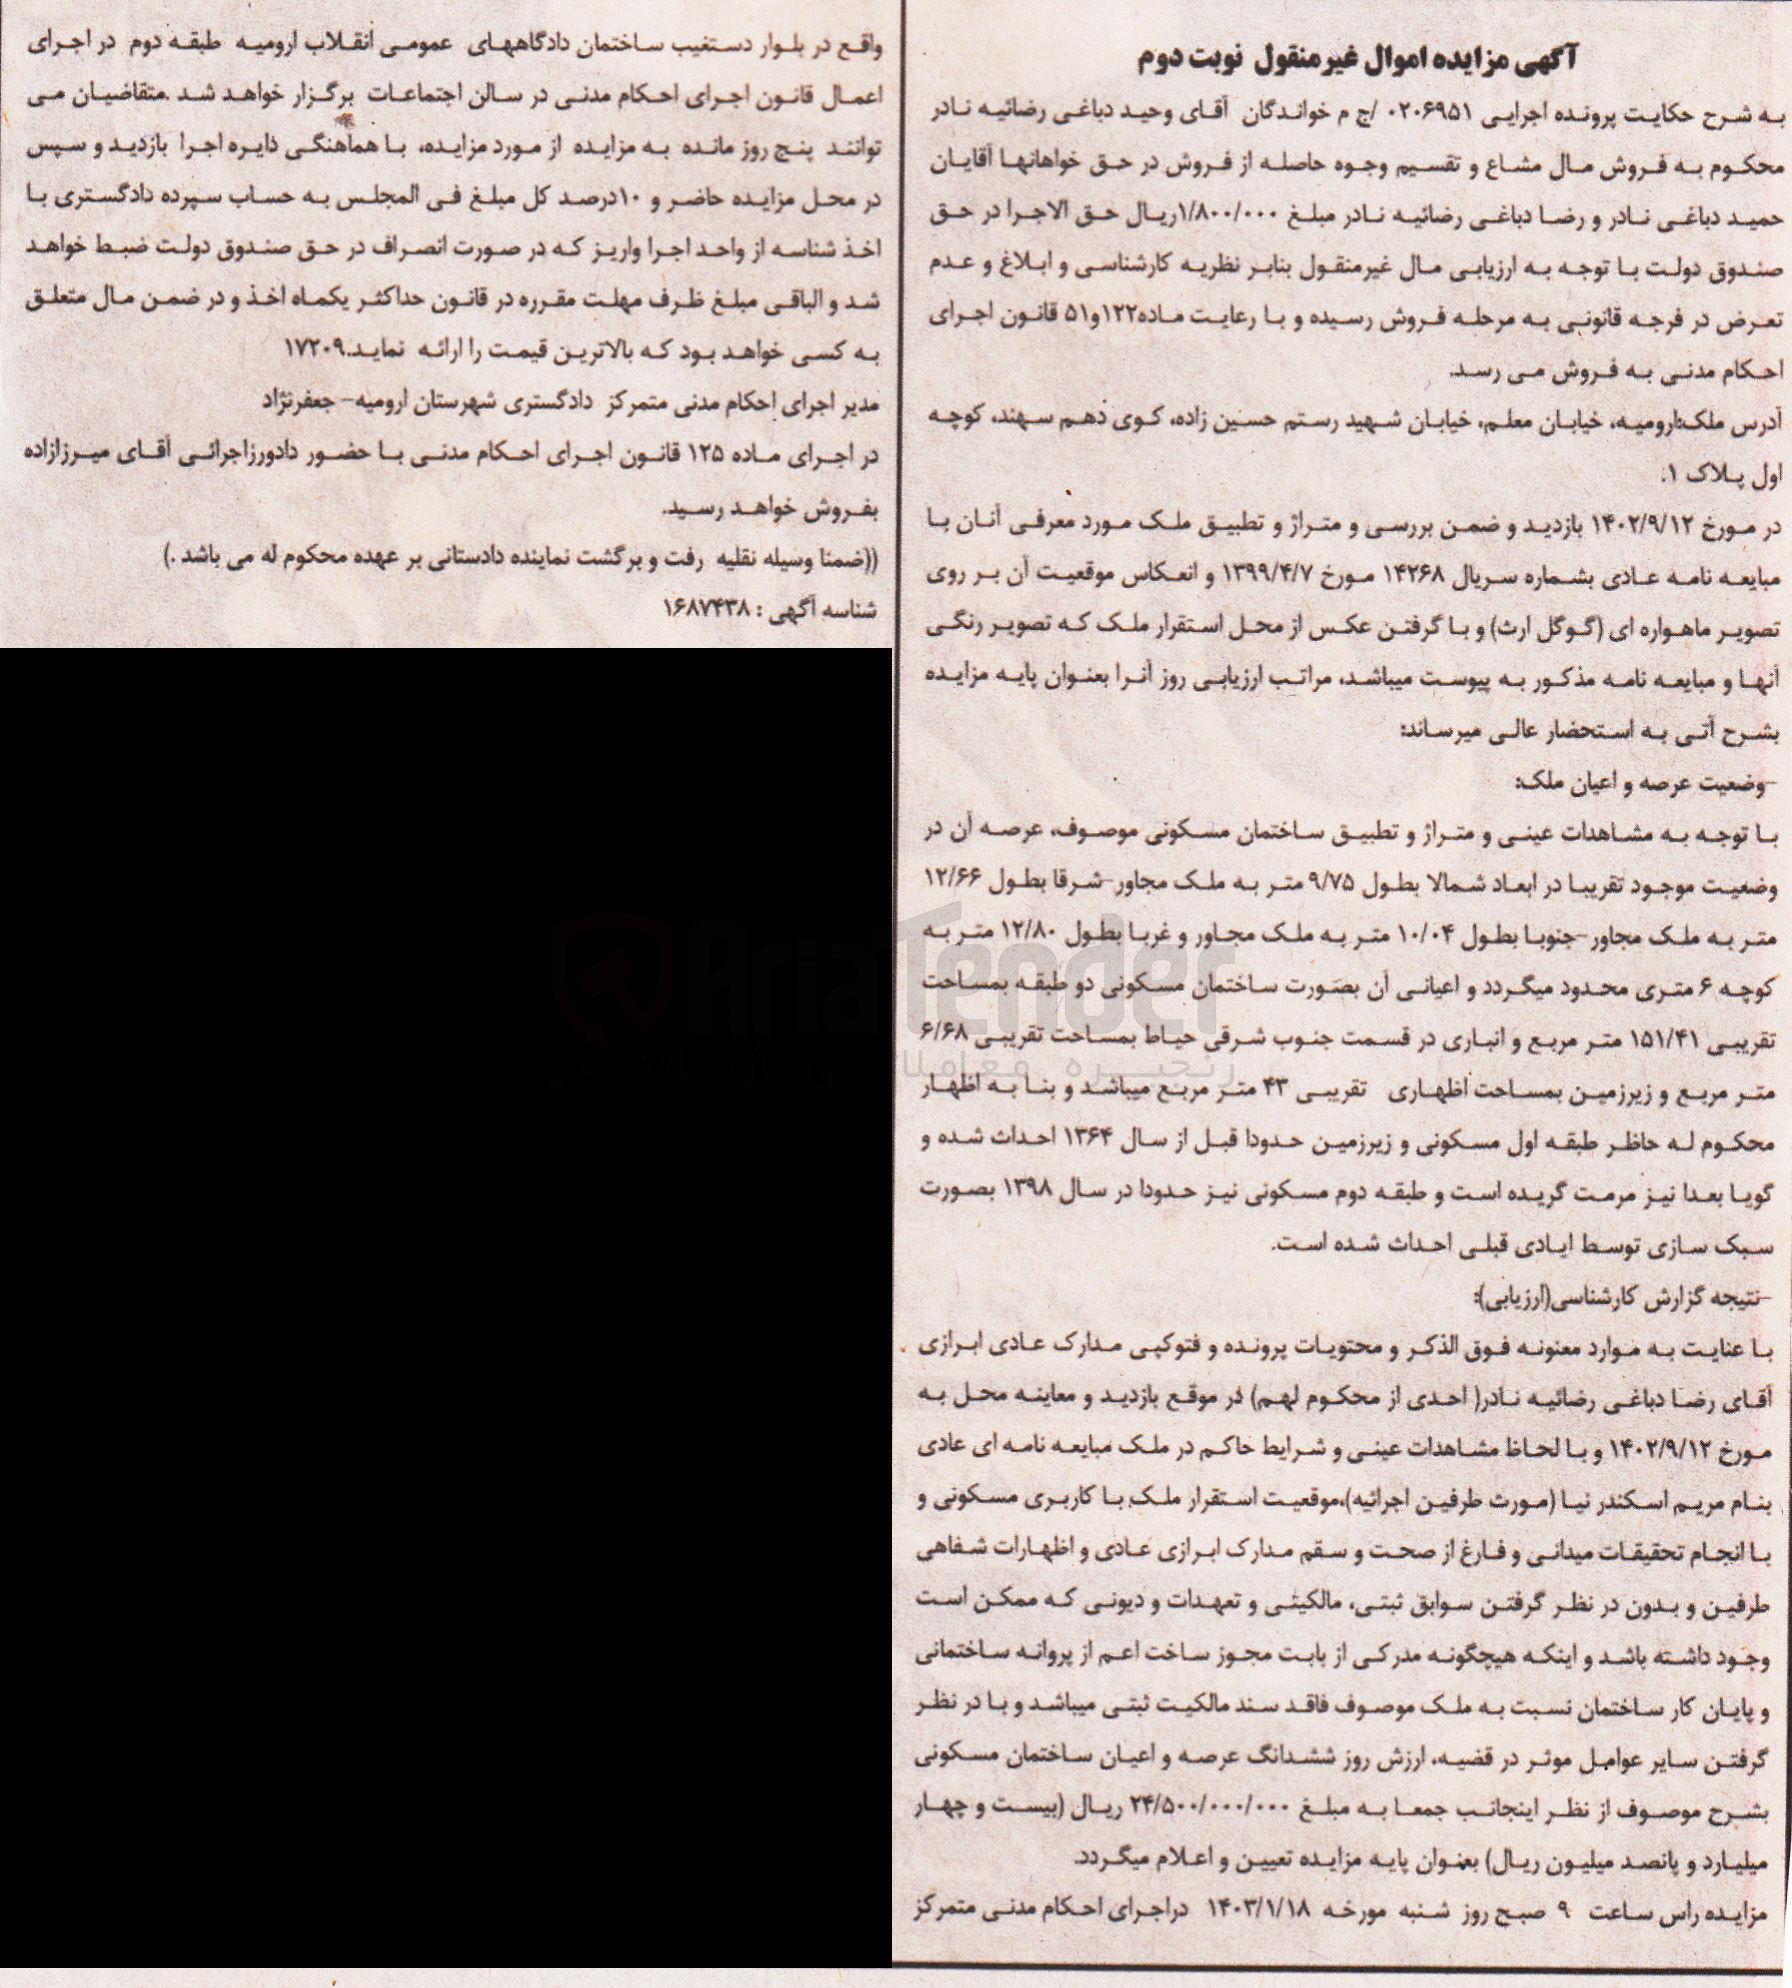 آگهی مزایده اموال غیرمنقول نوبت دوم
به شرح حکایت پرونده اجرایی ۰۲۰۶۹۵۱ /ج م خواندگان آقای وحید دباغی رضائیه نادر
محکوم به فروش مال مشاع و تقسیم وجوه حاصله از فروش در حق خواهانها آقایان
حمید دباغی نادر و رضا دباغی رضائیه نادر مبلغ ۱/۸۰۰/۰۰۰ریال حق الاجرا در حق
صندوق دولت با توجه به ارزیابی مال غیرمنقول بنابر نظریه کارشناسی و ابلاغ و عدم
تعرض در فرجه قانونی به مرحله فروش رسیده و با رعایت ماده۱۲۲و۵۱ قانون اجرای
احکام مدنی به فروش می رسد.
آدرس ملک:ارومیه، خیابان معلم، خیابان شهید رستم حسین زاده، کوی دهم سهند، کوچه
اول پلاک ۱.
در مورخ ۱۴۰۲/۹/۱۲ بازدید و ضمن بررسی و متراژ و تطبیق ملک مورد معرفی آنان با
مبایعه نامه عادی بشماره سریال ۱۴۲۶۸ مورخ ۱۳۹۹/۴/۷ و انعکاس موقعیت آن بر روی
تصویر ماهواره ای (گوگل ارث) و با گرفتن عکس از محل استقرار ملک که تصویر رنگی
آنها و مبایعه نامه مذکور به پیوست میباشد، مراتب ارزیابی روز آنرا بعنوان پایه مزایده
بشرح آتی به استحضار عالی میرساند:
-وضعیت عرصه و اعیان ملک:
با توجه به مشاهدات عینی و متراژ و تطبیق ساختمان مسکونی موصوف، عرصه آن در
وضعیت موجود تقریبا در ابعاد شمالا بطول ۹/۷۵ متر به ملک مجاور-شرقا بطول ۱۲/۶۶
متر به ملک مجاور-جنوبا بطول ۱۰/۰۴ متر به ملک مجاور و غربا بطول ۱۲/۸۰ متر به
کوچه ۶ متری محدود میگردد و اعیانی آن بصورت ساختمان مسکونی دو طبقه بمساحت
تقریبی ۱۵۱/۴۱ متر مربع و انباری در قسمت جنوب شرقی حیاط بمساحت تقریبی ۶/۶۸
متر مربع و زیرزمین بمساحت اظهاری تقریبی ۴۳ متر مربع میباشد و بنا به اظهار
محکوم له حاظر طبقه اول مسکونی و زیرزمین حدودا قبل از سال ۱۳۶۴ احداث شده و
گویا بعدا نیز مرمت گریده است و طبقه دوم مسکونی نیز حدودا در سال ۱۳۹۸ بصورت
سبک سازی توسط ایادی قبلی احداث شده است.
-نتیجه گزارش کارشناسی(ارزیابی):
با عنایت به موارد معنونه فوق الذکر و محتویات پرونده و فتوکپی مدارک عادی ابرازی
آقای رضا دباغی رضائیه نادر( احدی از محکوم لهم) در موقع بازدید و معاینه محل به
مورخ ۱۴۰۲/۹/۱۲ و با لحاظ مشاهدات عینی و شرایط حاکم در ملک مبایعه نامه ای عادی
بنام مریم اسکندر نیا (مورث طرفین اجرائیه)،موقعیت استقرار ملک با کاربری مسکونی و
با انجام تحقیقات میدانی و فارغ از صحت و سقم مدارک ابرازی عادی و اظهارات شفاهی
طرفین و بدون در نظر گرفتن سوابق ثبتی، مالکیتی و تعهدات و دیونی که ممکن است
وجود داشته باشد و اینکه هیچگونه مدرکی از بابت مجوز ساخت اعم از پروانه ساختمانی
و پایان کار ساختمان نسبت به ملک موصوف فاقد سند مالکیت ثبتی میباشد و با در نظر
گرفتن سایر عوامل موثر در قضیه، ارزش روز ششدانگ عرصه و اعیان ساختمان مسکونی
بشرح موصوف از نظر اینجانب جمعا به مبلغ ۲۴/۵۰۰/۰۰۰/۰۰۰ ریال (بیست و چهار
میلیارد و پانصد میلیون ریال) بعنوان پایه مزایده تعیین و اعلام میگردد.
مزایده راس ساعت ۹ صبح روز شنبه مورخه ۱۴۰۳/۱/۱۸ دراجرای احکام مدنی متمرکز
واقع در بلوار دستغیب ساختمان دادگاههای عمومی انقلاب ارومیه طبقه دوم در اجرای
اعمال قانون اجرای احکام مدنی در سالن اجتماعات برگزار خواهد شد .متقاضیان می
توانند پنج روز مانده به مزایده از مورد مزایده، با هماهنگی دایره اجرا بازدید و سپس
در محل مزایده حاضر و ۱۰درصد کل مبلغ فی المجلس به حساب سپرده دادگستری با
اخذ شناسه از واحد اجرا واریز که در صورت انصراف در حق صندوق دولت ضبط خواهد
شد و الباقی مبلغ ظرف مهلت مقرره در قانون حداکثر یکماه اخذ و در ضمن مال متعلق
به کسی خواهد بود که بالاترین قیمت را ارائه نماید.۱۷۲۰۹
مدیر اجرای احکام مدنی متمرکز دادگستری شهرستان ارومیه- جعفرنژاد
در اجرای ماده ۱۲۵ قانون اجرای احکام مدنی با حضور دادورزاجرائی آقای میرزازاده
بفروش خواهد رسید.
((ضمنا وسیله نقلیه رفت و برگشت نماینده دادستانی بر عهده محکوم له می باشد .)
شناسه آگهی : ۱۶۸۷۴۳۸
AriaTender
زنجیره معاملاتی آریاتندر